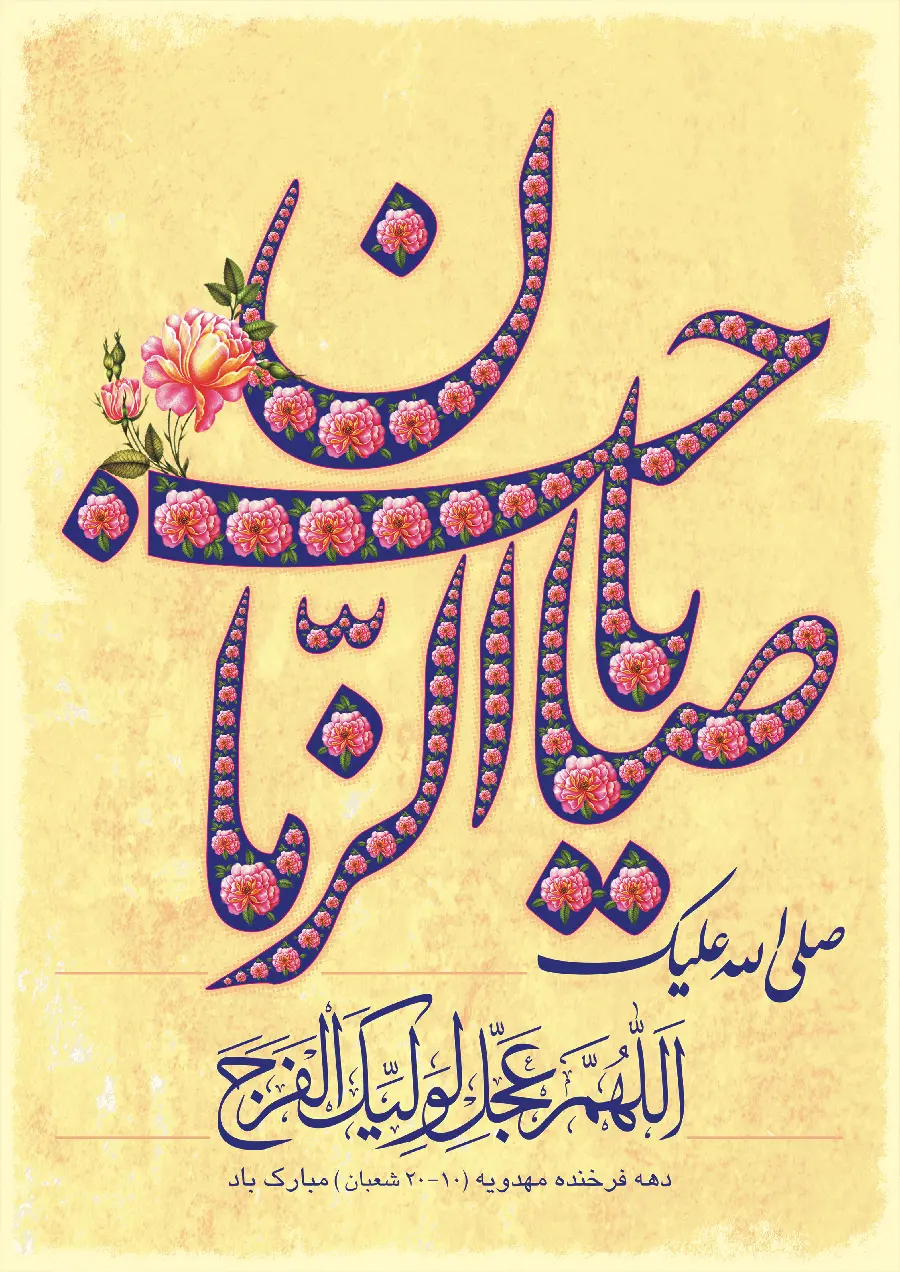 یا صاحب الزّمان
صلی الله علیک
اَللّهُمَّ عَجِّل لِوَلِیِّکَ الفَرَج
دهه فرخنده مهدویه (۱۰-۲۰ شعبان) مبارک باد